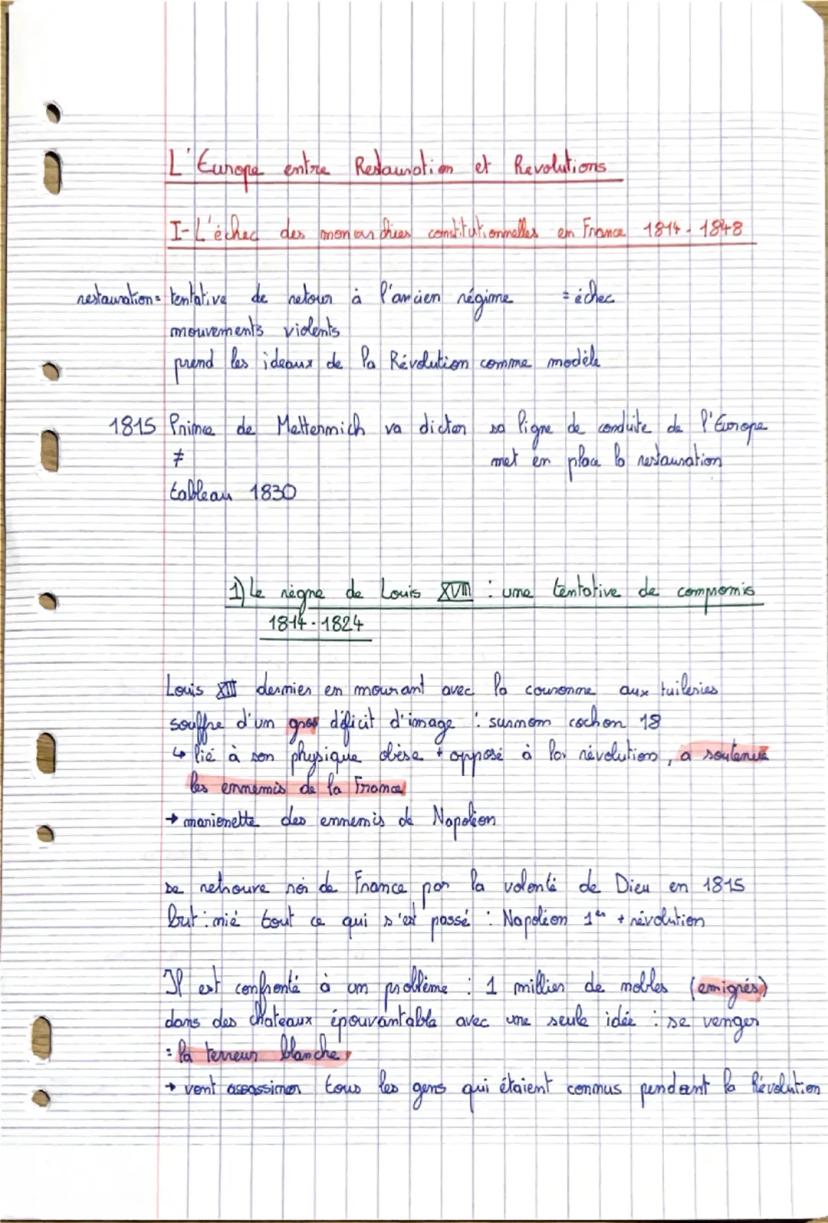 L'Europe entre Restauration et Revolutions
I-L'échec des monarchies constitutionnelles en France 1814-1848
restauration= tentative de retour à l'ancien régime = échec
mouvements violents
prend les ideaux de la Révolution comme modèle
1815 Prince de Metternich va dicter sa ligne de conduite de l'Europe
≠ met en place la restauration
tableau 1830
1) Le règne de Louis XVIII : une tentative de compromis
1814-1824
Louis XVIII dernier en mourant avec la couronne aux tuileries
souffre d'un gros déficit d'image : surnom cochon 18
↳ lié à son physique obèse + opposé à la révolution, a soutenue
les ennemis de la France
→ marionette des ennemis de Napoléon
se retrouve roi de France par la volonté de Dieu en 1815
but : nié tout ce qui s'est passé : Napoléon 1er + révolution
Il est confronté à un problème : 1 millier de nobles (emigrés)
dans des chateaux épouvantable avec une seule idée : se venger
= la terreur blanche
→ vont assassiner tous les gens qui étaient connus pendant la Révolution